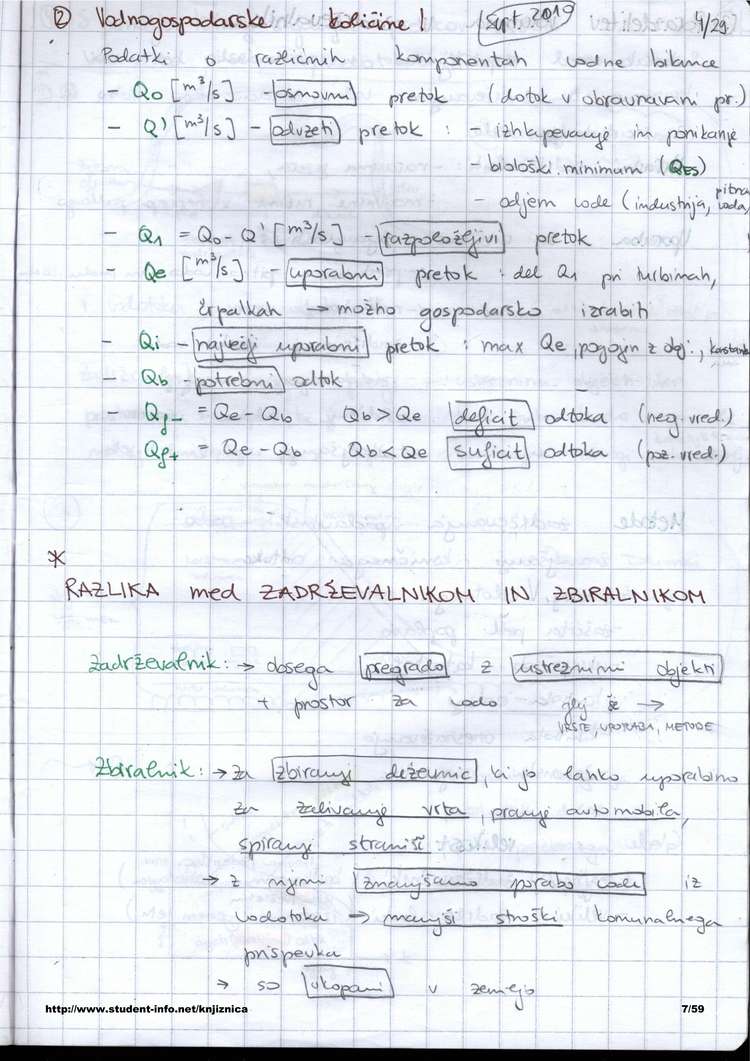 ② Vodnogospodarske količine! sept. 2019 4/29
Podatki o različnih komponentah vodne bilance
- Qo [m³/s] - osnovni pretok (dotok v obravnavani pr.)
- Q' [m³/s] - odvzeti pretok : - izhlapevanje in ponikanje
- biološki minimum (QES)
- odjem vode (industrija, pitna voda,
- Q1 = Qo - Q' [m³/s] - razpoložljivi pretok
- Qe [m³/s] - uporabni pretok : del Q1 pri turbinah,
črpalkah → možno gospodarsko izrabiti
- Qi - največji uporabni pretok : max Qe, pogojen z obj.,
- Qb - potrebni odtok
- Qf- = Qe - Qb Qb > Qe deficit odtoka (neg. vred.)
Qf+ = Qe - Qb Qb < Qe suficit odtoka (poz. vred.)
*
RAZLIKA med ZADRŽEVALNIKOM IN ZBIRALNIKOM
Zadrževalnik: → obsega pregrado z ustreznimi objekti
+ prostor za vodo glej še →
VRSTE, UPORABA, METODE
Zbiralnik: → za zbiranje deževnic, ki jo lahko uporabimo
za zalivanje vrta, pranje avtomobila,
spiranje stranišč
→ z njimi zmanjšamo porabo vode iz
vodotoka → manjši stroški komunalnega
prispevka
→ so vkopani v zemljo
http://www.student-info.net/knjiznica 7/59